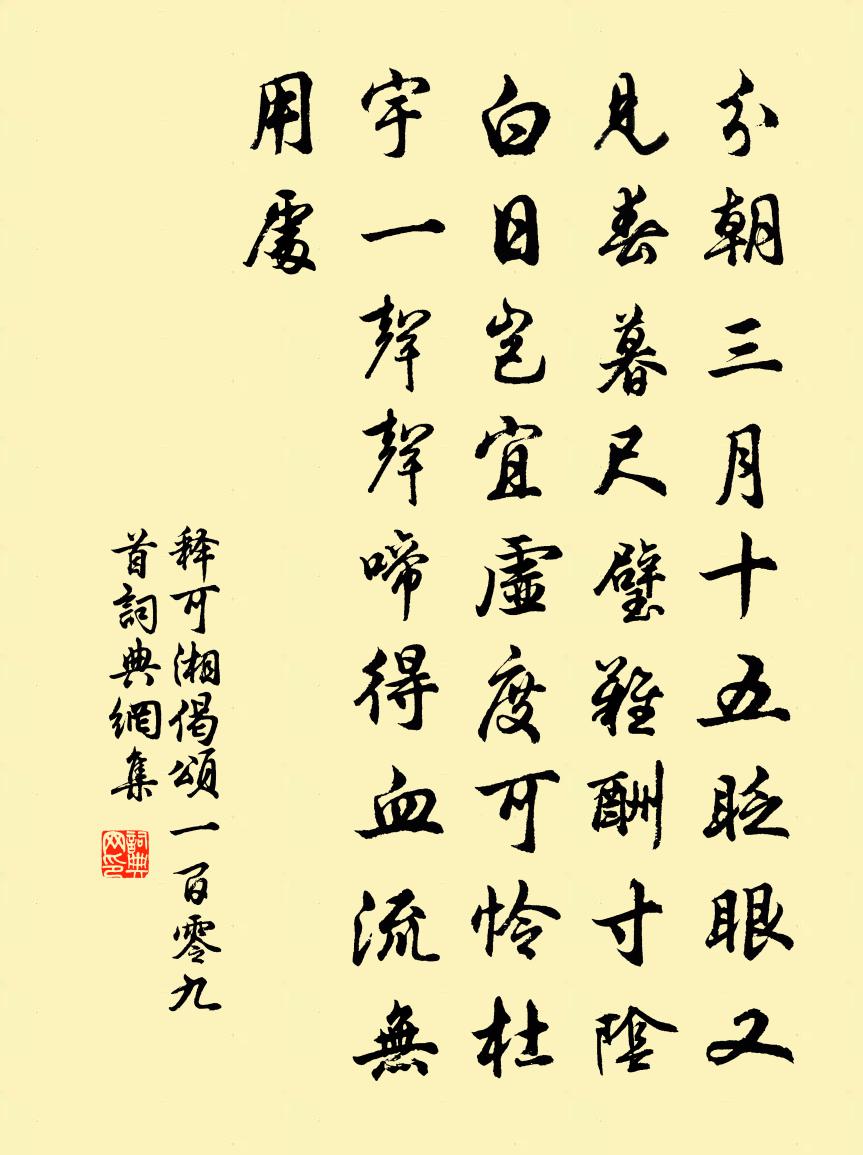 分朝三月十五眨眼又
見春暮尺璧難酬寸陰
白日豈宜虛度可憐杜
宇一聲聲啼得血流無
用處
释可湘偈頌一百零九
首詞典網集
詞典網印